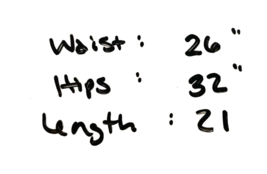 Waist: 26"
Hips : 32"
Length : 21